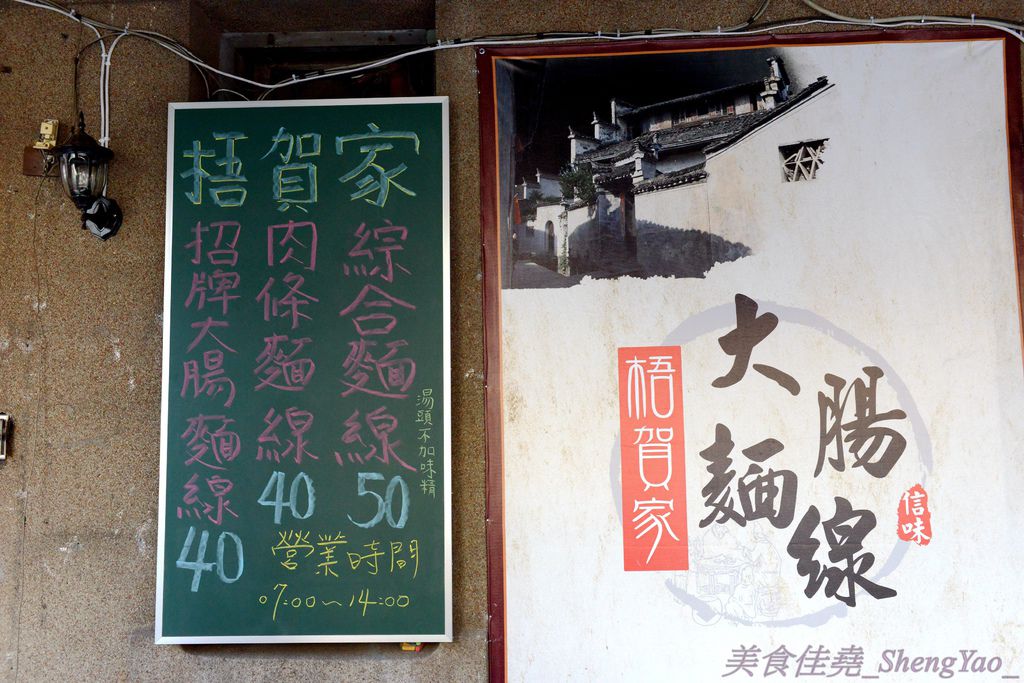 捂賀家
綜合麵線 50
肉條麵線 40
招牌大腸麵線 40
湯頭不加味精
營業時間
07:00~14:00
梧賀家
大腸
麵線
信味
美食佳堯_ShengYao_